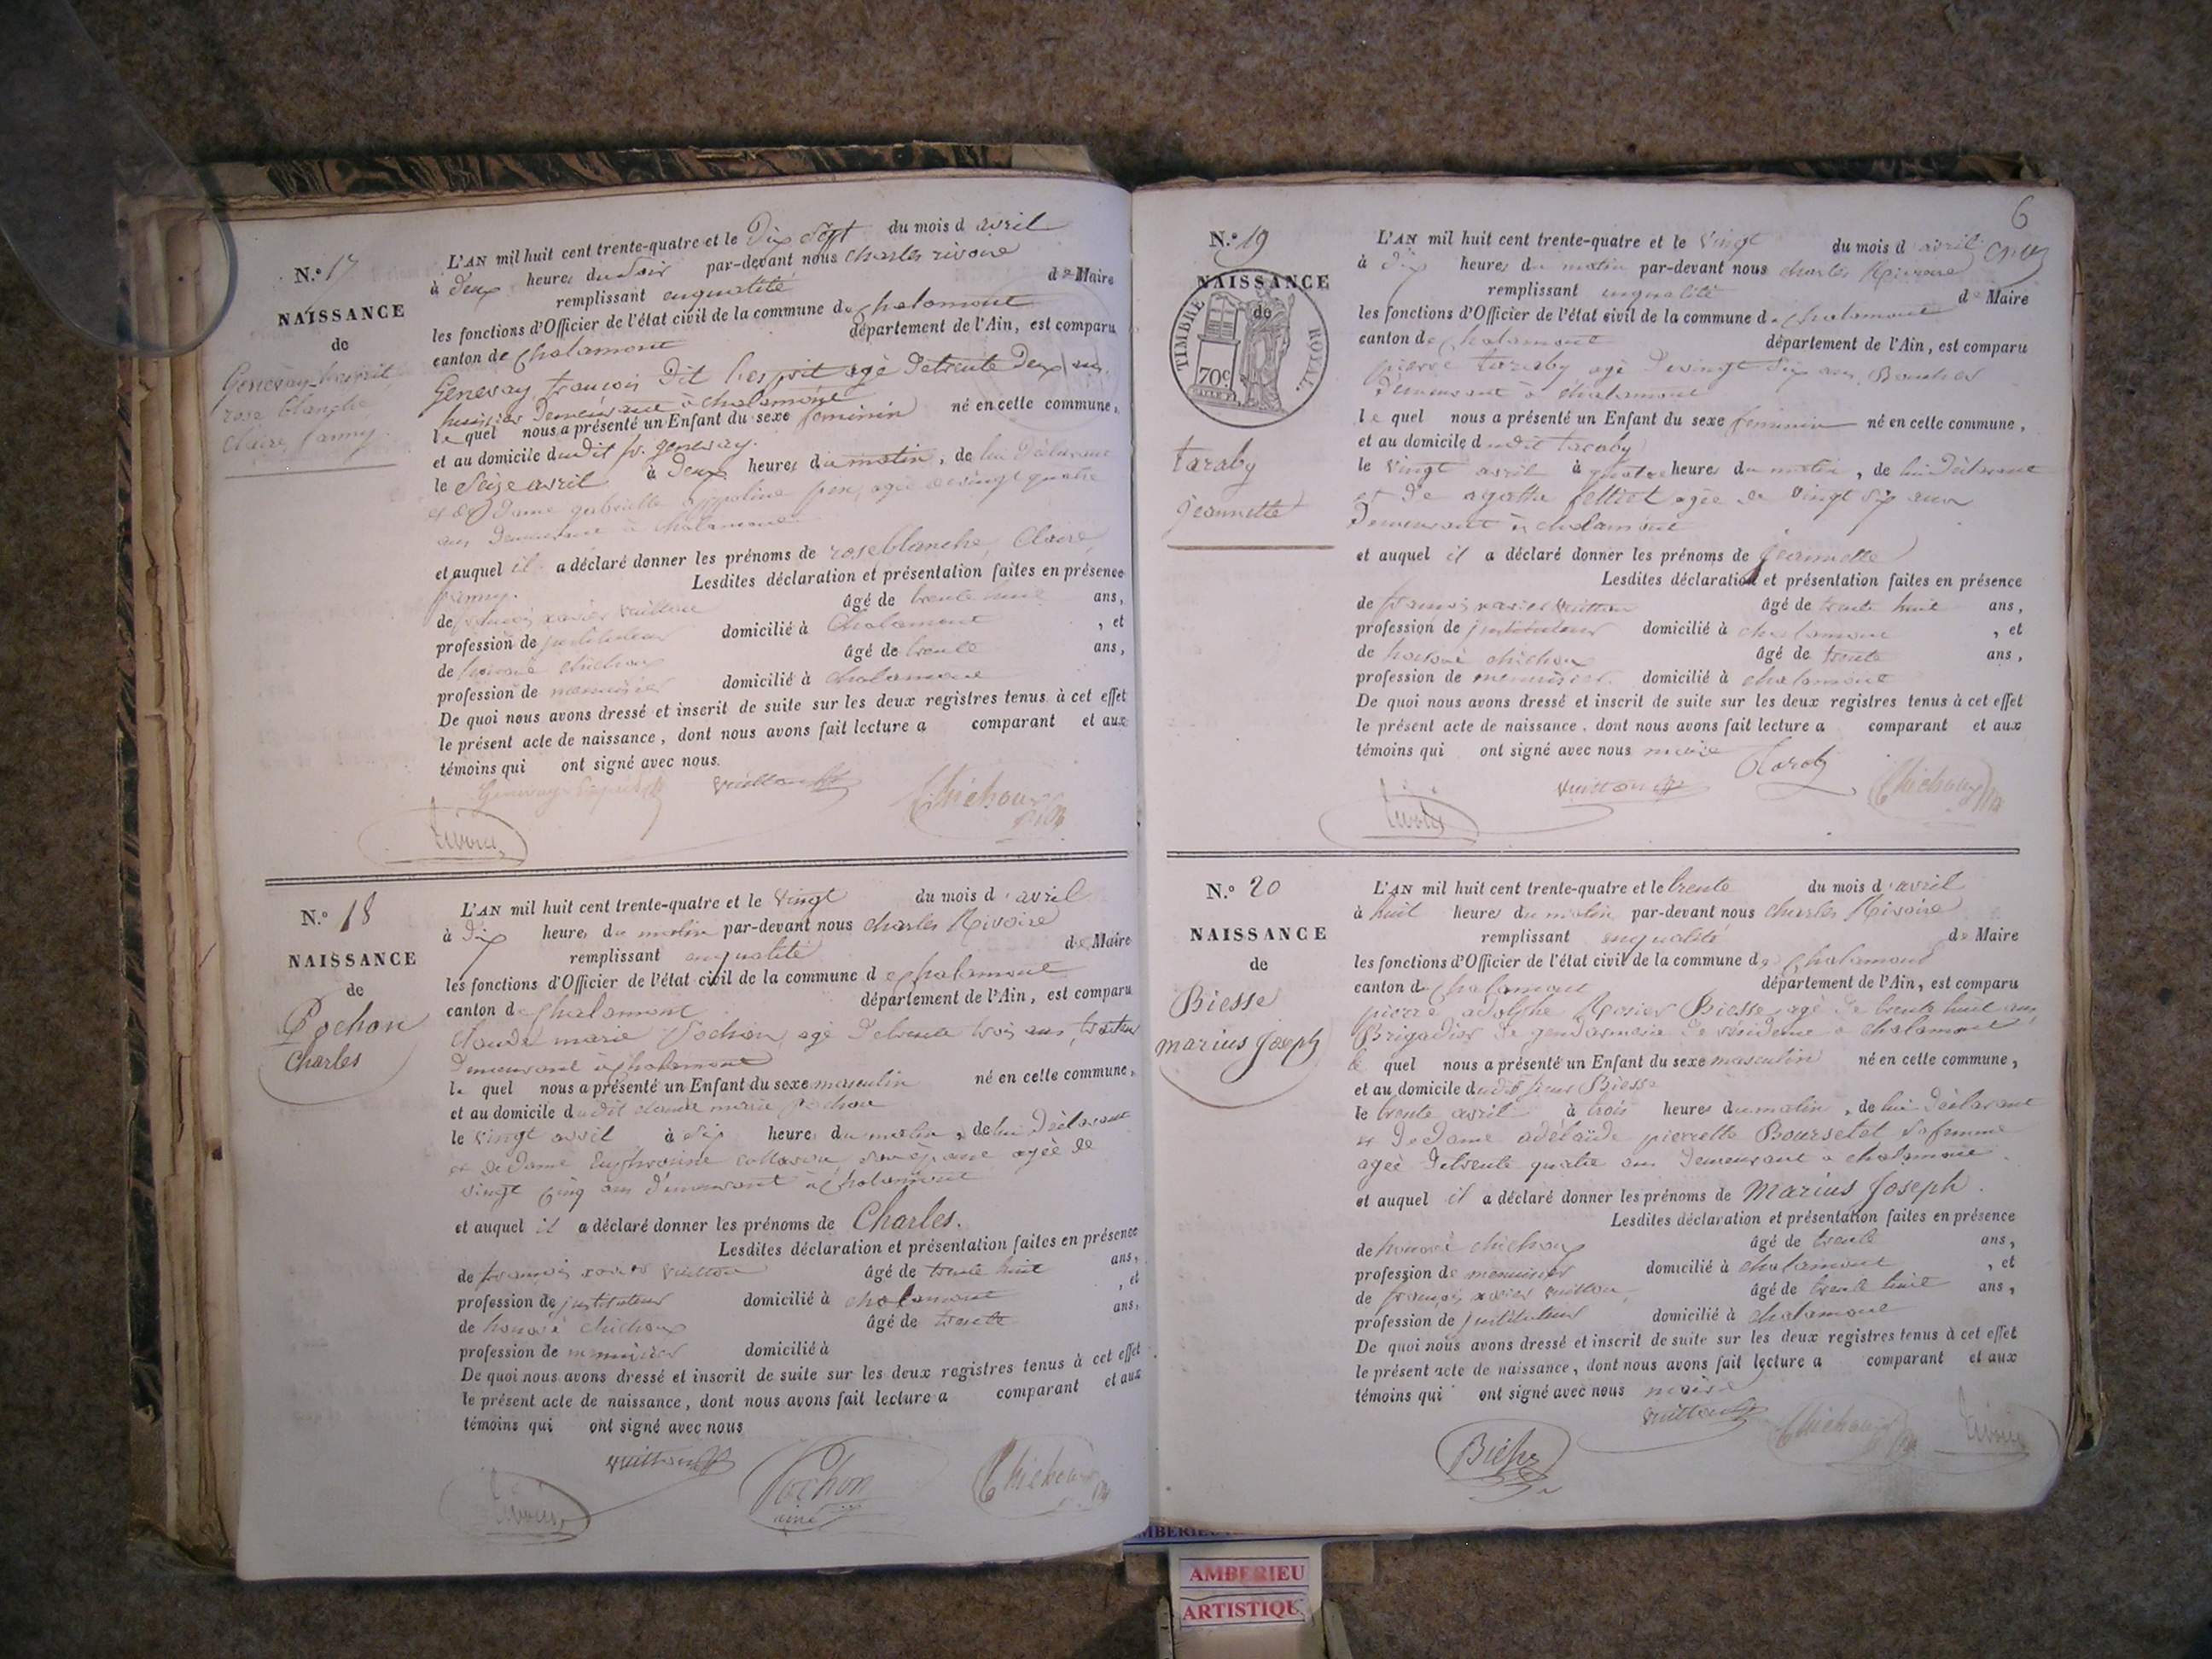 N.º 17
NAISSANCE
de
Genevay
rose blanche
Claire fanny.
L'AN mil huit cent trente-quatre et le Dix Sept du mois d avril
à Deux heures du Soir par-devant nous charles rivoire
remplissant enqualité de Maire
les fonctions d'Officier de l'état civil de la commune de Chalamont
canton de Chalamont département de l'Ain, est comparu
Genevay francois Dit Lesprit agé Detrente Deux ans,
huissier Demeurant à chalamont
le quel nous a présenté un Enfant du sexe féminin né en cette commune,
et au domicile dudit fr. genevay.
le Seize avril à Deux heures du matin, de lui Déclarant
et de Dame gabrielle agée de vingt quatre
ans Demeurant à chalamont
et auquel il a déclaré donner les prénoms de rose blanche, Claire,
fanny. Lesdites déclaration et présentation faites en présence
de françois xavier vuitton âgé de trente huit ans,
profession de jnstituteur domicilié à Chalamont , et
de honoré chichoux âgé de trente ans,
profession de menuisier domicilié à chalamont
De quoi nous avons dressé et inscrit de suite sur les deux registres tenus à cet effet
le présent acte de naissance, dont nous avons fait lecture a comparant et aux
témoins qui ont signé avec nous.
Genevay vuitton Chichoux
rivoire
N.º 18
NAISSANCE
de
Pochon
Charles
L'AN mil huit cent trente-quatre et le vingt du mois d'avril
à Dix heures du matin par-devant nous charles Rivoire
remplissant enqualité de Maire
les fonctions d'Officier de l'état civil de la commune de chalamont
canton de Chalamont département de l'Ain, est comparu
Claude marie Pochon, agé Detrente trois ans,
Demeurant à chalamont
le quel nous a présenté un Enfant du sexe masculin né en cette commune,
et au domicile dudit claude marie Pochon
le vingt avril à Six heures du matin, de lui Déclarant
et de Dame agée de
vingt cinq ans demeurant à chalamont
et auquel il a déclaré donner les prénoms de Charles.
Lesdites déclaration et présentation faites en présence
de françois xavier vuitton âgé de trente huit ans,
profession de jnstituteur domicilié à chalamont , et
de honoré chichoux âgé de trente ans,
profession de menuisier domicilié à
De quoi nous avons dressé et inscrit de suite sur les deux registres tenus à cet effet
le présent acte de naissance, dont nous avons fait lecture a comparant et aux
témoins qui ont signé avec nous
vuitton Pochon Chichoux
rivoire aîné
6
N.º 19
NAISSANCE
de
TIMBRE ROYAL.
70c
taraby
jeannette
L'AN mil huit cent trente-quatre et le vingt du mois d avril
à Dix heures du matin par-devant nous charles Rivoire
remplissant enqualité de Maire
les fonctions d'Officier de l'état civil de la commune de chalamont
canton de Chalamont département de l'Ain, est comparu
pierre taraby agé Devingt Six ans, Boucher
Demeurant à chalamont
le quel nous a présenté un Enfant du sexe féminin né en cette commune,
et au domicile dudit taraby
le vingt avril à quatre heures du matin, de lui Déclarant
et De agathe agée de vingt six ans
Demeurant à chalamont
et auquel il a déclaré donner les prénoms de jeannette
Lesdites déclaration et présentation faites en présence
de françois xavier vuitton âgé de trente huit ans,
profession de jnstituteur domicilié à chalamont , et
de honoré chichoux âgé de trente ans,
profession de menuisier domicilié à chalamont
De quoi nous avons dressé et inscrit de suite sur les deux registres tenus à cet effet
le présent acte de naissance, dont nous avons fait lecture a comparant et aux
témoins qui ont signé avec nous maire
vuitton Taraby Chichoux
rivoire
N.º 20
NAISSANCE
de
Biesse
marius Joseph
L'AN mil huit cent trente-quatre et le trente du mois d'avril
à huit heures du matin par-devant nous charles Rivoire
remplissant enqualité de Maire
les fonctions d'Officier de l'état civil de la commune de Chalamont
canton de Chalamont département de l'Ain, est comparu
pierre adolphe Biesse, agé de trente huit ans
Brigadier de gendarmerie de résidence à chalamont
le quel nous a présenté un Enfant du sexe masculin né en cette commune,
et au domicile dudit sieur Biesse
le trente avril à trois heures du matin, de lui Déclarant
et de Dame adélaïde pierrette Boursetet sa femme
agée Detrente quatre ans Demeurant à chalamont.
et auquel il a déclaré donner les prénoms de Marius Joseph.
Lesdites déclaration et présentation faites en présence
de honoré chichoux âgé de trente ans,
profession de menuisier domicilié à chalamont , et
de françois xavier vuitton, âgé de trente huit ans,
profession de jnstituteur domicilié à chalamont
De quoi nous avons dressé et inscrit de suite sur les deux registres tenus à cet effet
le présent acte de naissance, dont nous avons fait lecture a comparant et aux
témoins qui ont signé avec nous maire
vuitton Chichoux rivoire
Biesse
AMBERIEU
ARTISTIQUE